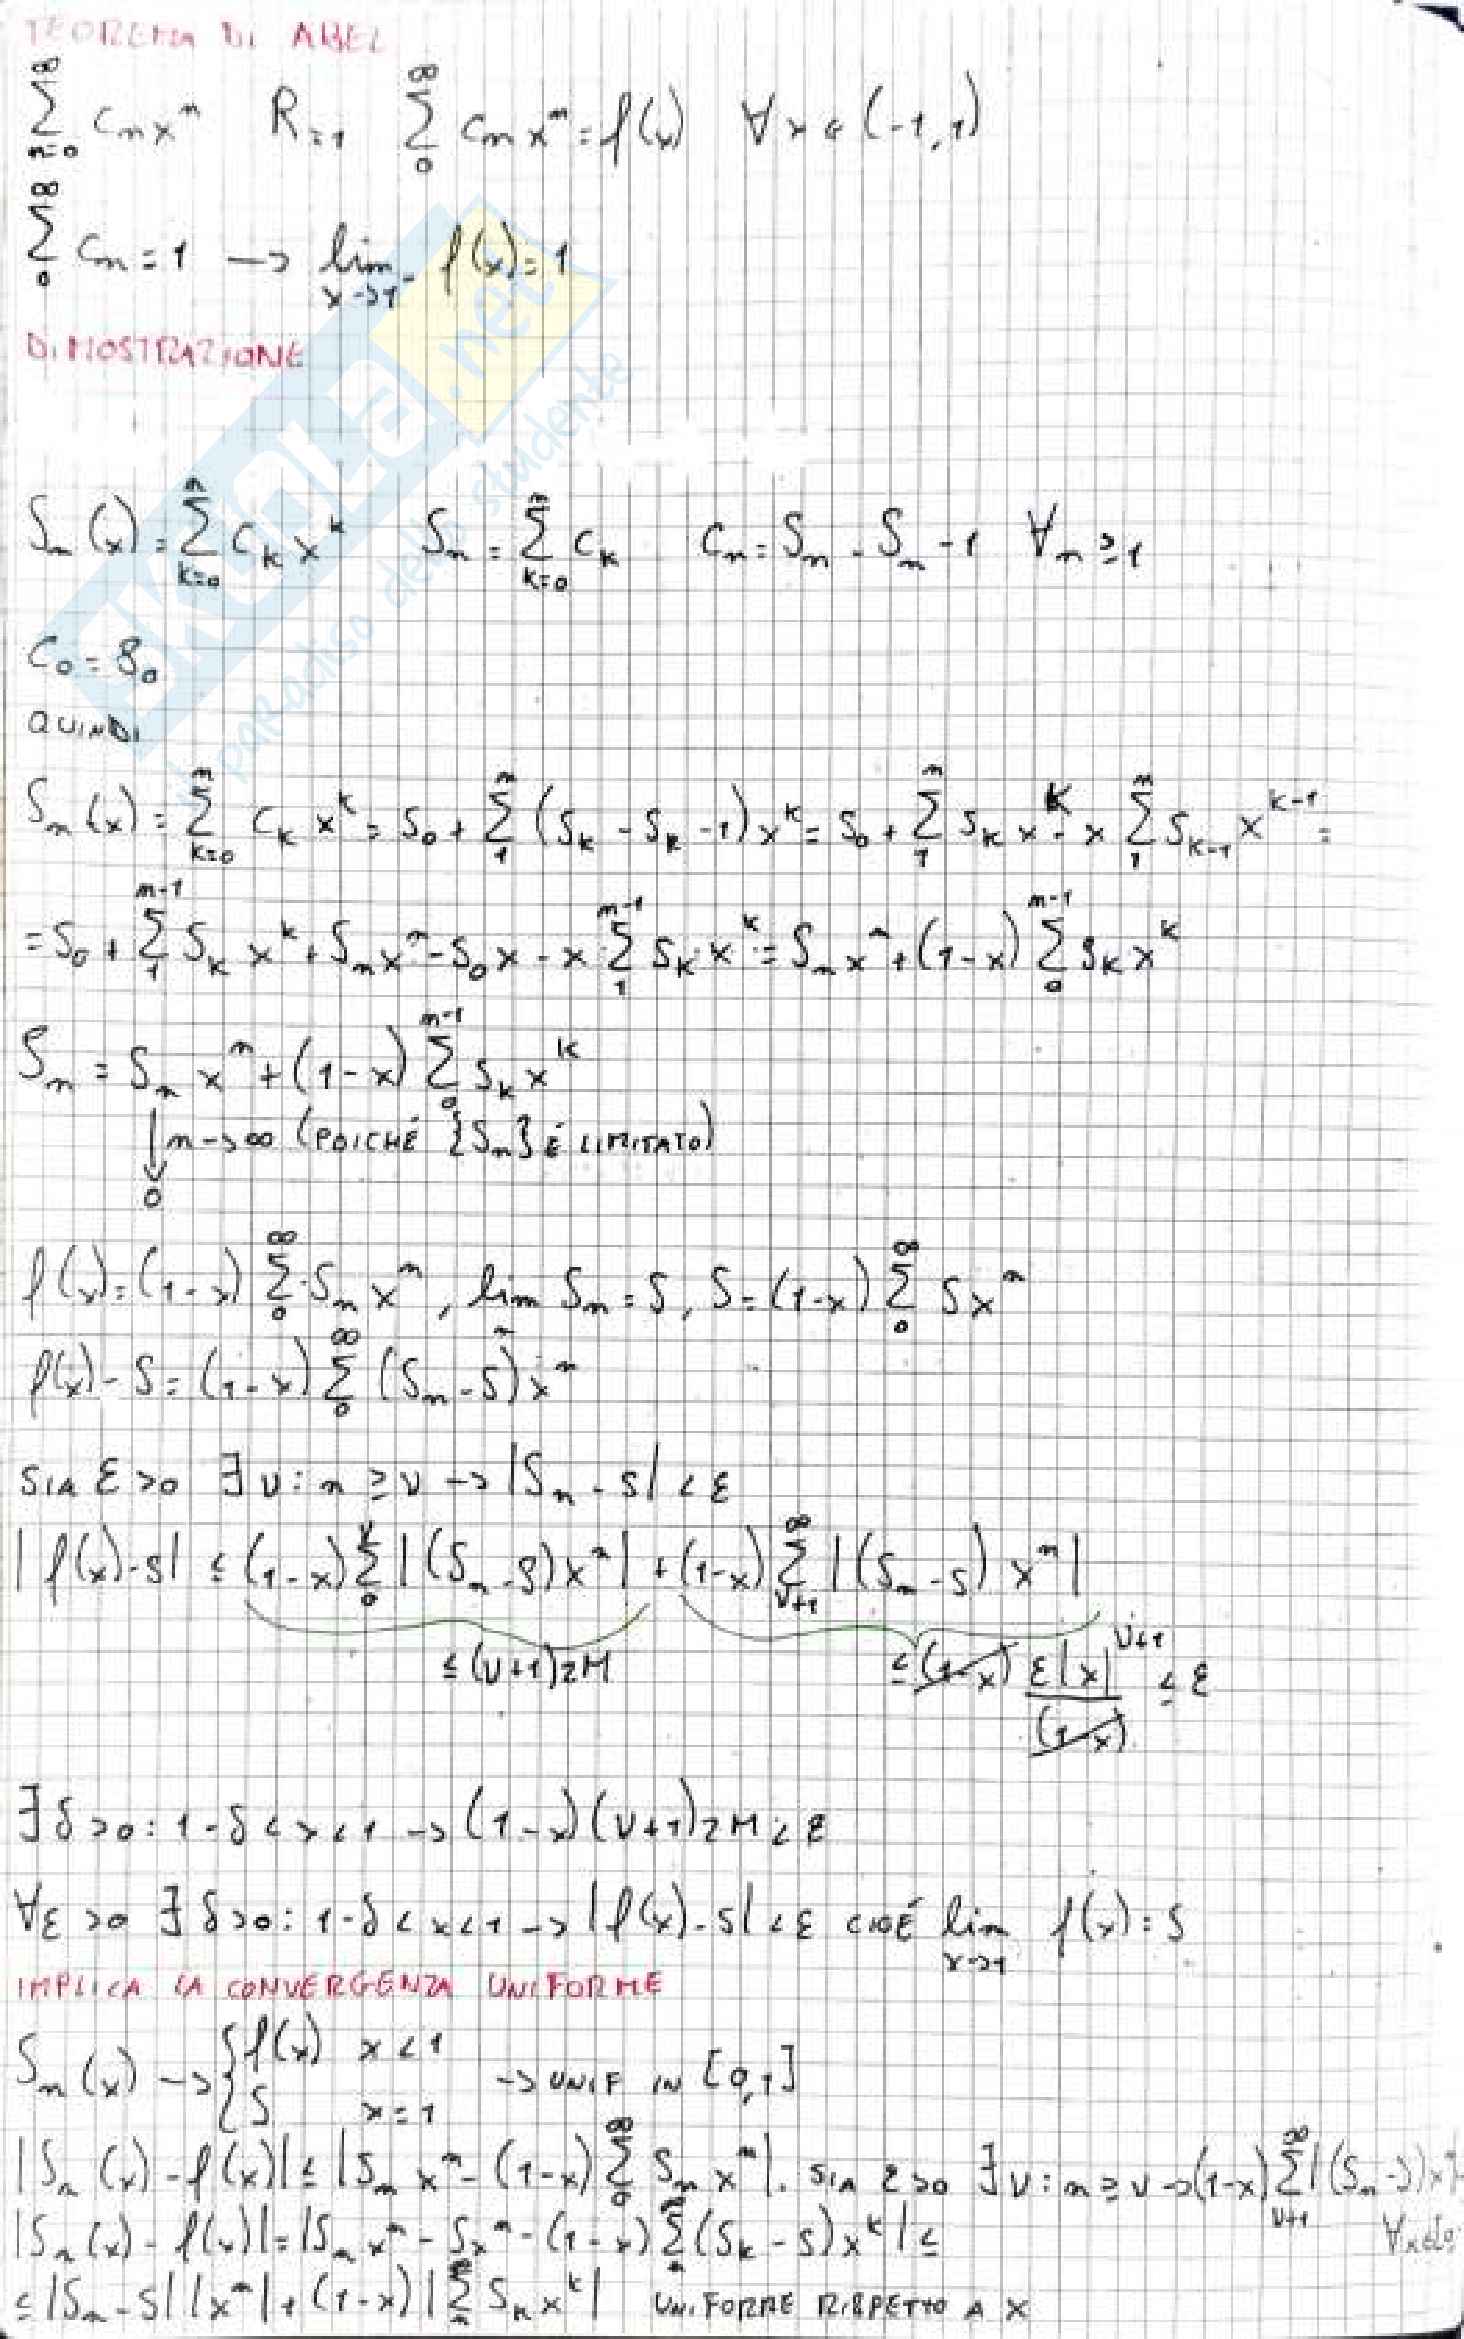 TEOREMA DI ABEL
∑_{n=0}^{∞} c_n x^n   R=1   ∑_0^∞ c_n x^n = f(x)   ∀x∈(-1,1)
∑_0^∞ c_n = 1 → lim_{x→1^-} f(x) = 1
DIMOSTRAZIONE
S_n(x) = ∑_{k=0}^n c_k x^k   S_n = ∑_{k=0}^n c_k   c_n = S_n - S_n -1   ∀n≥1
c_0 = S_0
QUINDI
S_n(x) = ∑_{k=0}^n c_k x^k = S_0 + ∑_1^n (S_k - S_k -1) x^k = S_0 + ∑_1^n S_k x^k - x ∑_1^n S_{k-1} x^{k-1} =
= S_0 + ∑_1^{n-1} S_k x^k + S_n x^n - S_0 x - x ∑_1^{n-1} S_k x^k = S_n x^n + (1-x) ∑_0^{n-1} S_k x^k
S_n = S_n x^n + (1-x) ∑_0^{n-1} S_k x^k
↓ n→∞ (POICHÉ {S_n} É LIMITATO)
0
f(x) = (1-x) ∑_0^∞ S_n x^n, lim_n S_n = S, S = (1-x) ∑_0^∞ S x^n
f(x) - S = (1-x) ∑_0^∞ (S_n - S) x^n
SIA ε>0 ∃ν: n≥ν → |S_n - S| < ε
|f(x) - S| ≤ (1-x) ∑_0^ν |(S_n - S) x^n| + (1-x) ∑_{ν+1}^∞ |(S_n - S) x^n|
≤ (ν+1)2M   ≤ (1-x) ε|x|^{ν+1} / (1-x) ≤ ε
∃δ>0: 1-δ < x < 1 → (1-x)(ν+1)2M < ε
∀ε>0 ∃δ>0: 1-δ < x < 1 → |f(x) - S| < ε CIOÉ lim_{x→1} f(x) = S
IMPLICA LA CONVERGENZA UNIFORME
S_n(x) → { f(x) x<1   → UNIF IN [0,1]
S x=1
|S_n(x) - f(x)| ≤ |S_n x^n - (1-x) ∑_0^∞ S_n x^n|. SIA ε>0 ∃ν: n≥ν → (1-x) ∑_{ν+1}^∞ |(S_n - S) x^n|
|S_n(x) - f(x)| = |S_n x^n - S x^n - (1-x) ∑_n^∞ (S_k - S) x^k| ≤
≤ |S_n - S| |x^n| + (1-x) |∑_n^∞ S_k x^k|   UNIFORME RISPETTO A X
SKUOLA.net
il paradiso dello studente